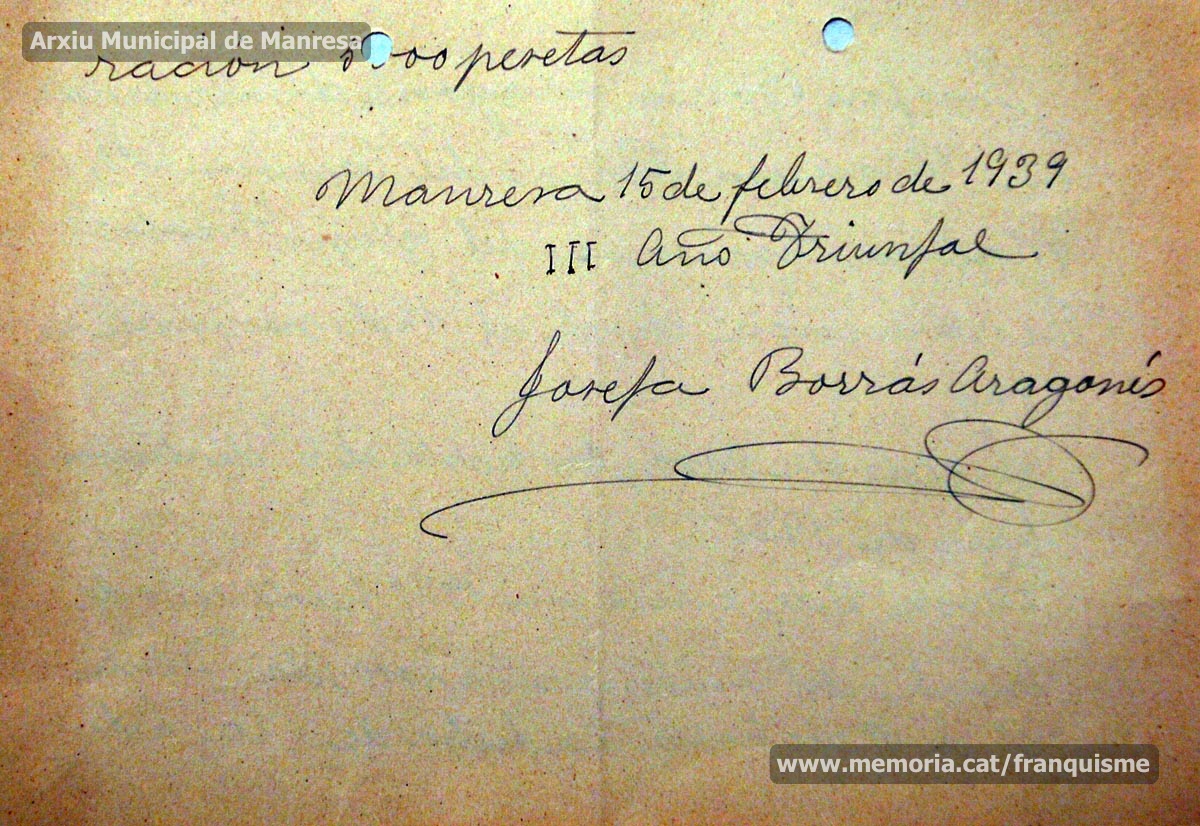 Arxiu Municipal de Manresa
ración pesetas
Manresa 15 de febrero de 1939
III Año Triunfal
Josefa Borrás Aragonés
www.memoria.cat/franquisme